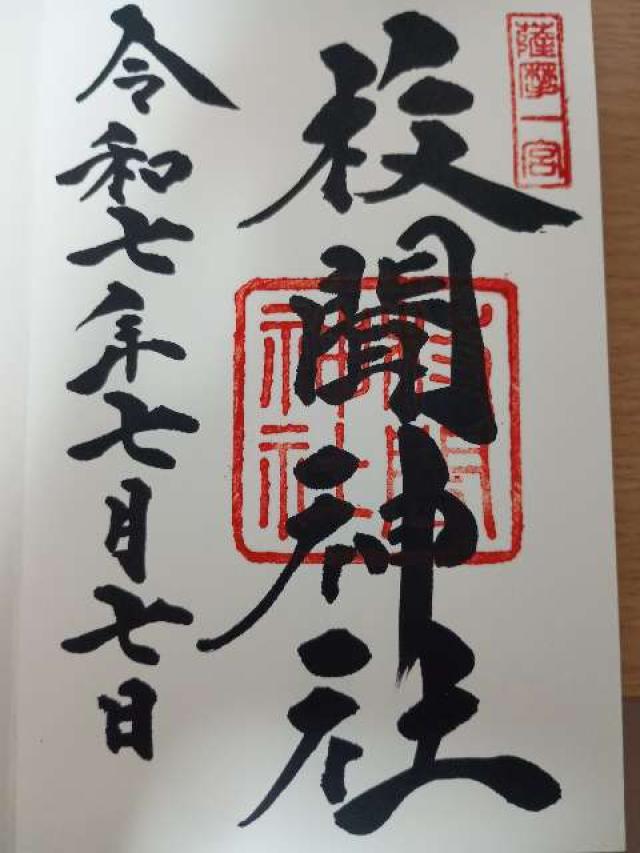 薩摩一宮
枚聞神社
枚聞神社
令和七年七月七日